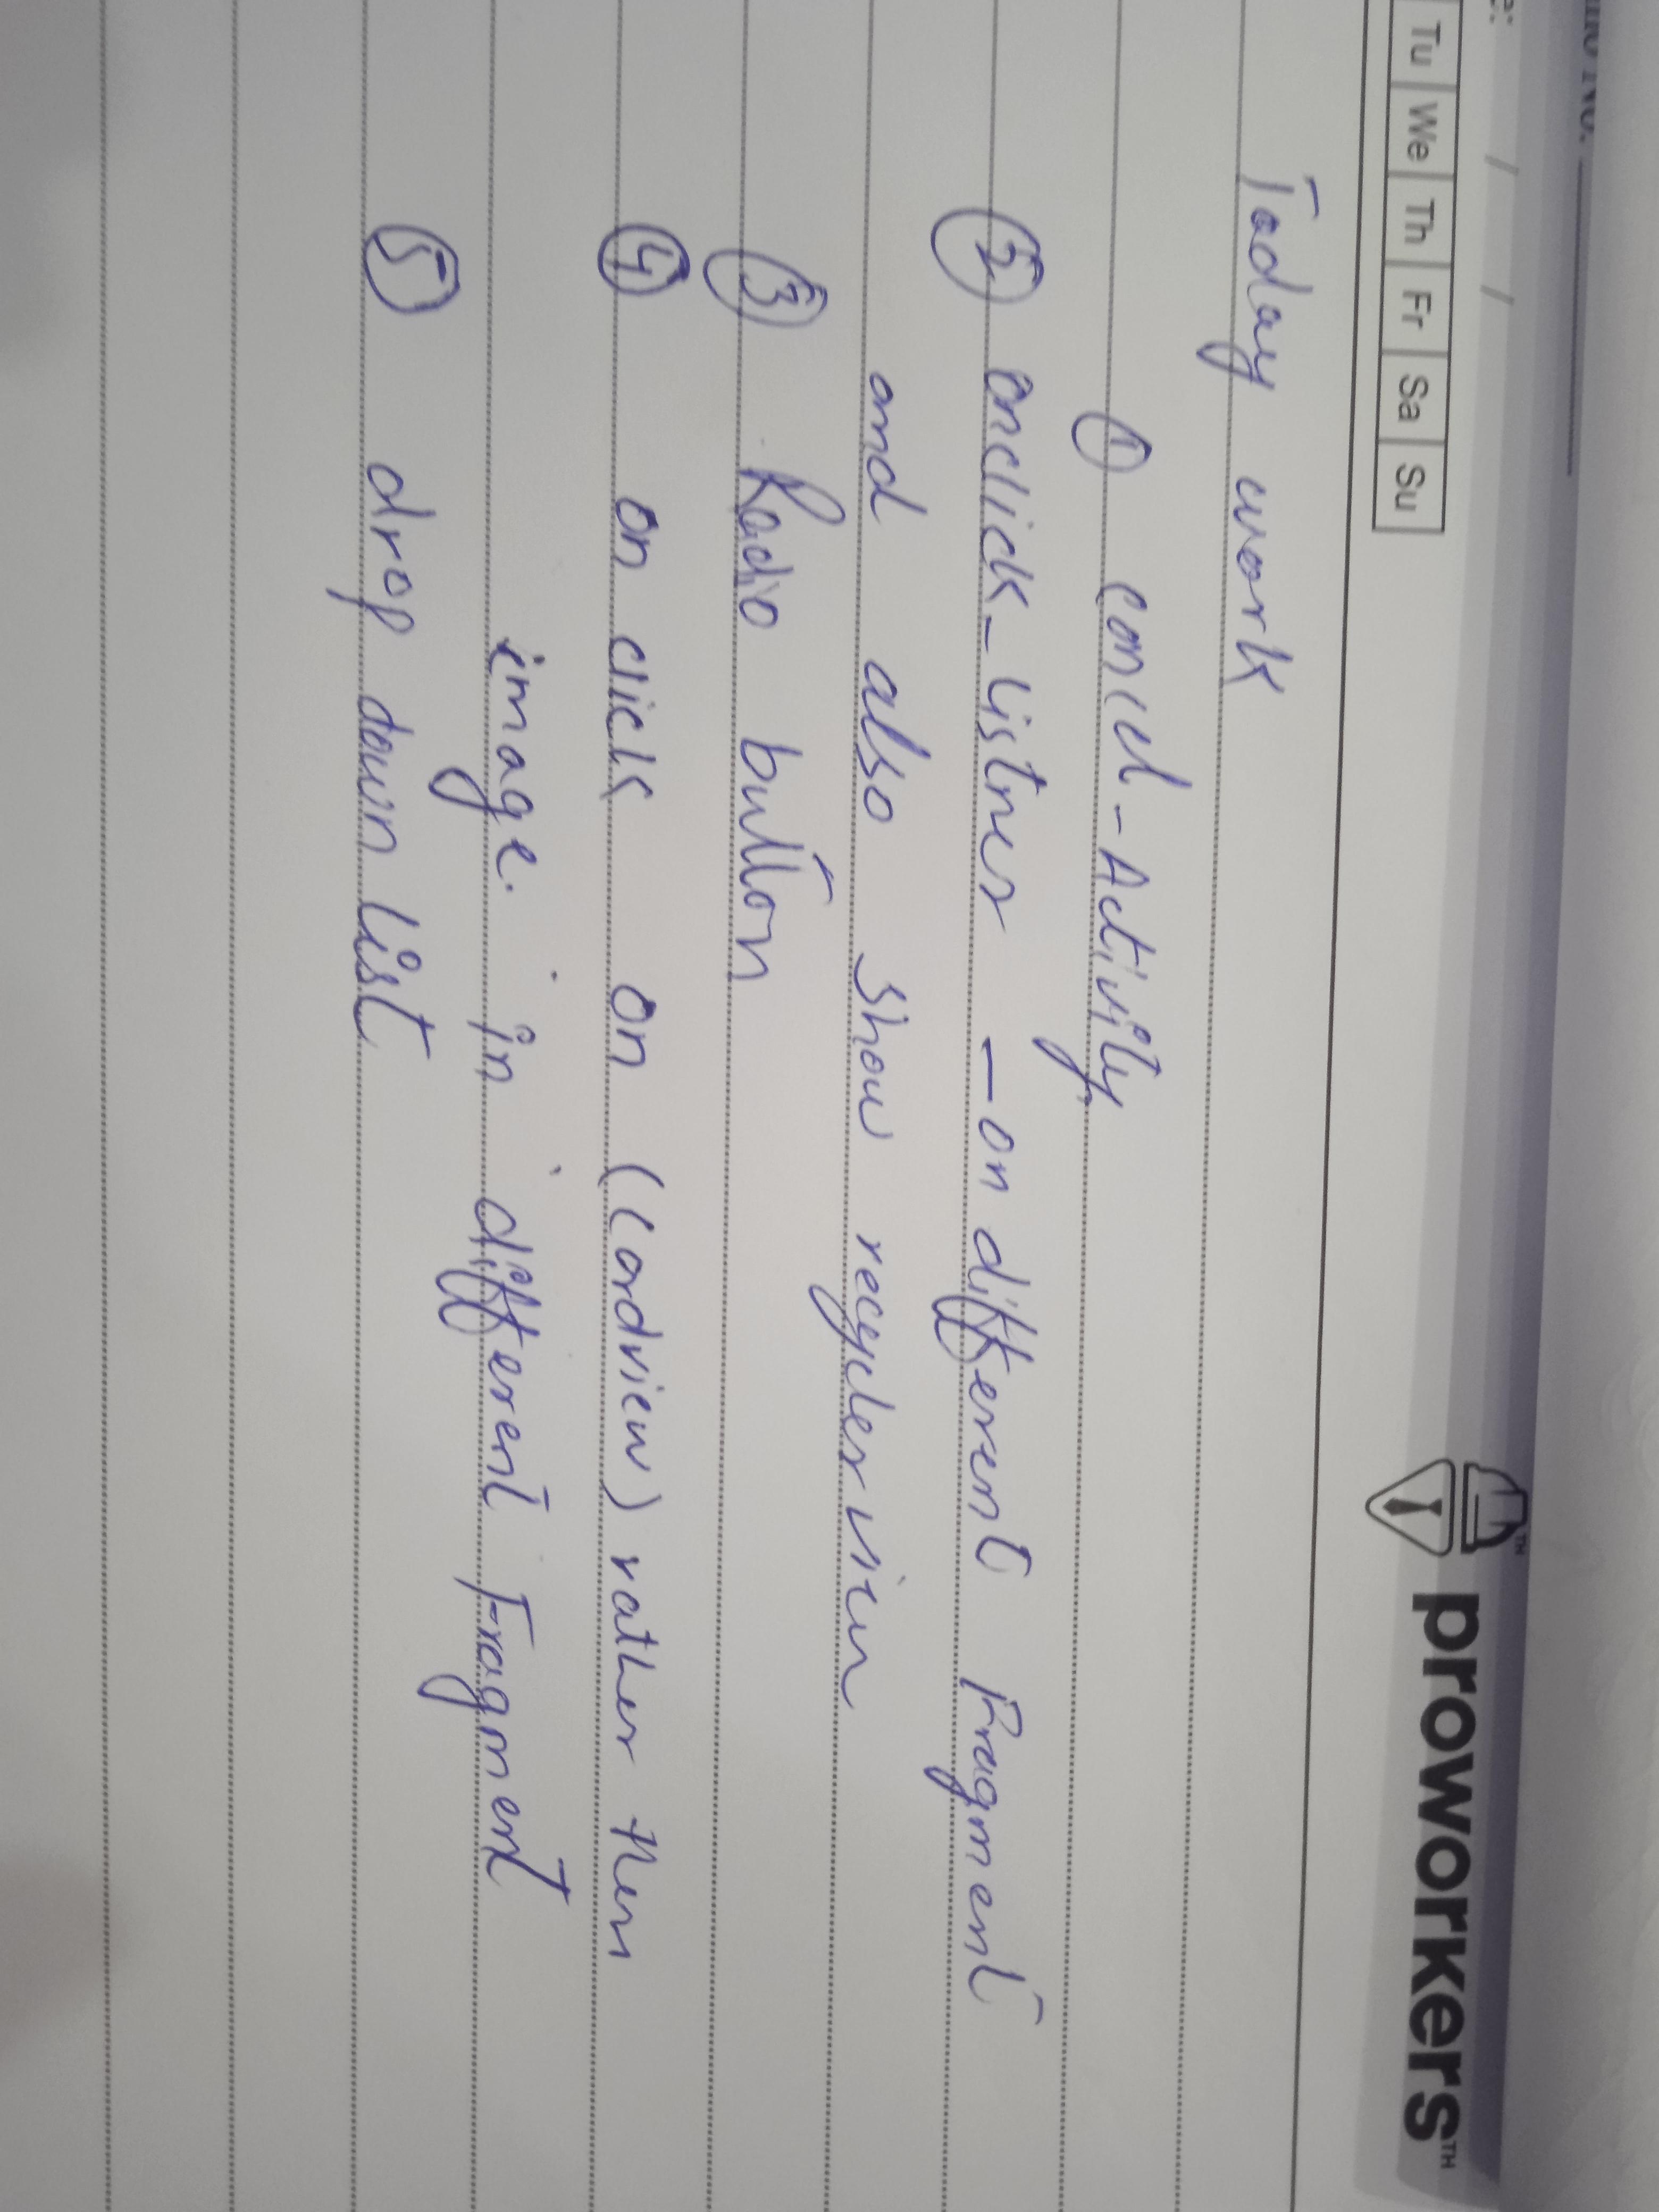 Tu We Th Fr Sa Su
proworkers™
Today work
① concl-Activity
② onclick-Listner - on different Fragment
and also show recycler view
③ Radio button
④ on click on (Cardview) rather then
image. in different Fragment
⑤ drop down List